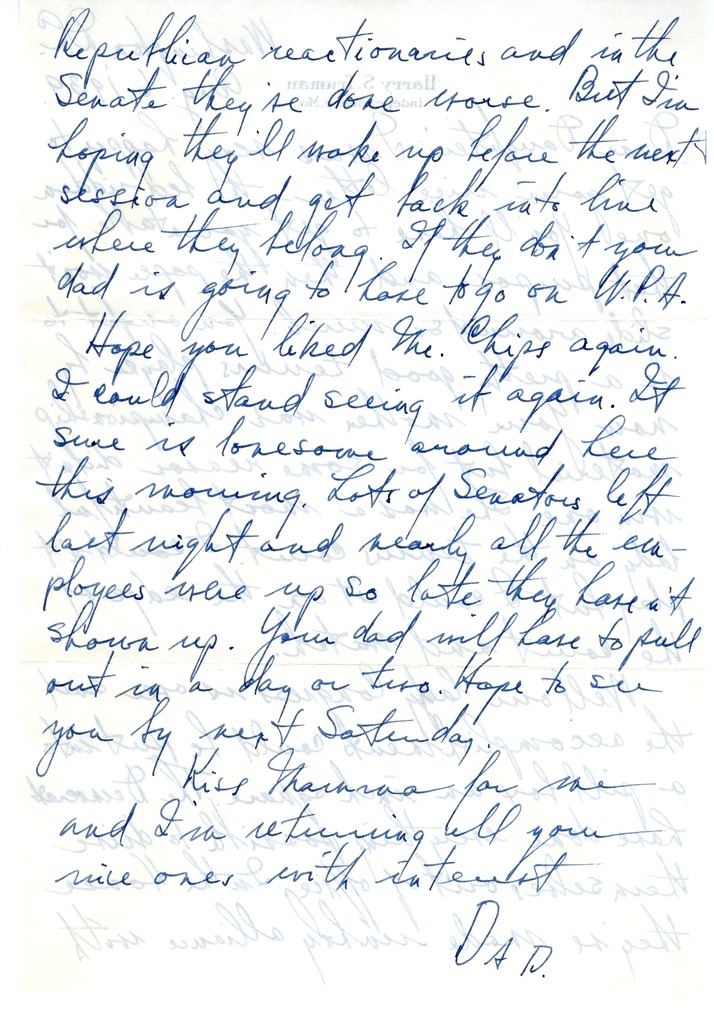 Republican reactionaries and in the
Senate they've done worse. But I'm
hoping they'll wake up before the next
session and get back into line
where they belong. If they don't your
dad is going to have to go on W.P.A.
Hope you liked Mr. Chips again.
I could stand seeing it again. It
sure is lonesome around here
this morning. Lots of Senators left
last night and nearly all the em-
ployees were up so late they haven't
shown up. Your dad will have to pull
out in a day or two. Hope to see
you by next Saturday.
Kiss Mamma for me
and I'm returning all your
nice ones with interest
DAD.